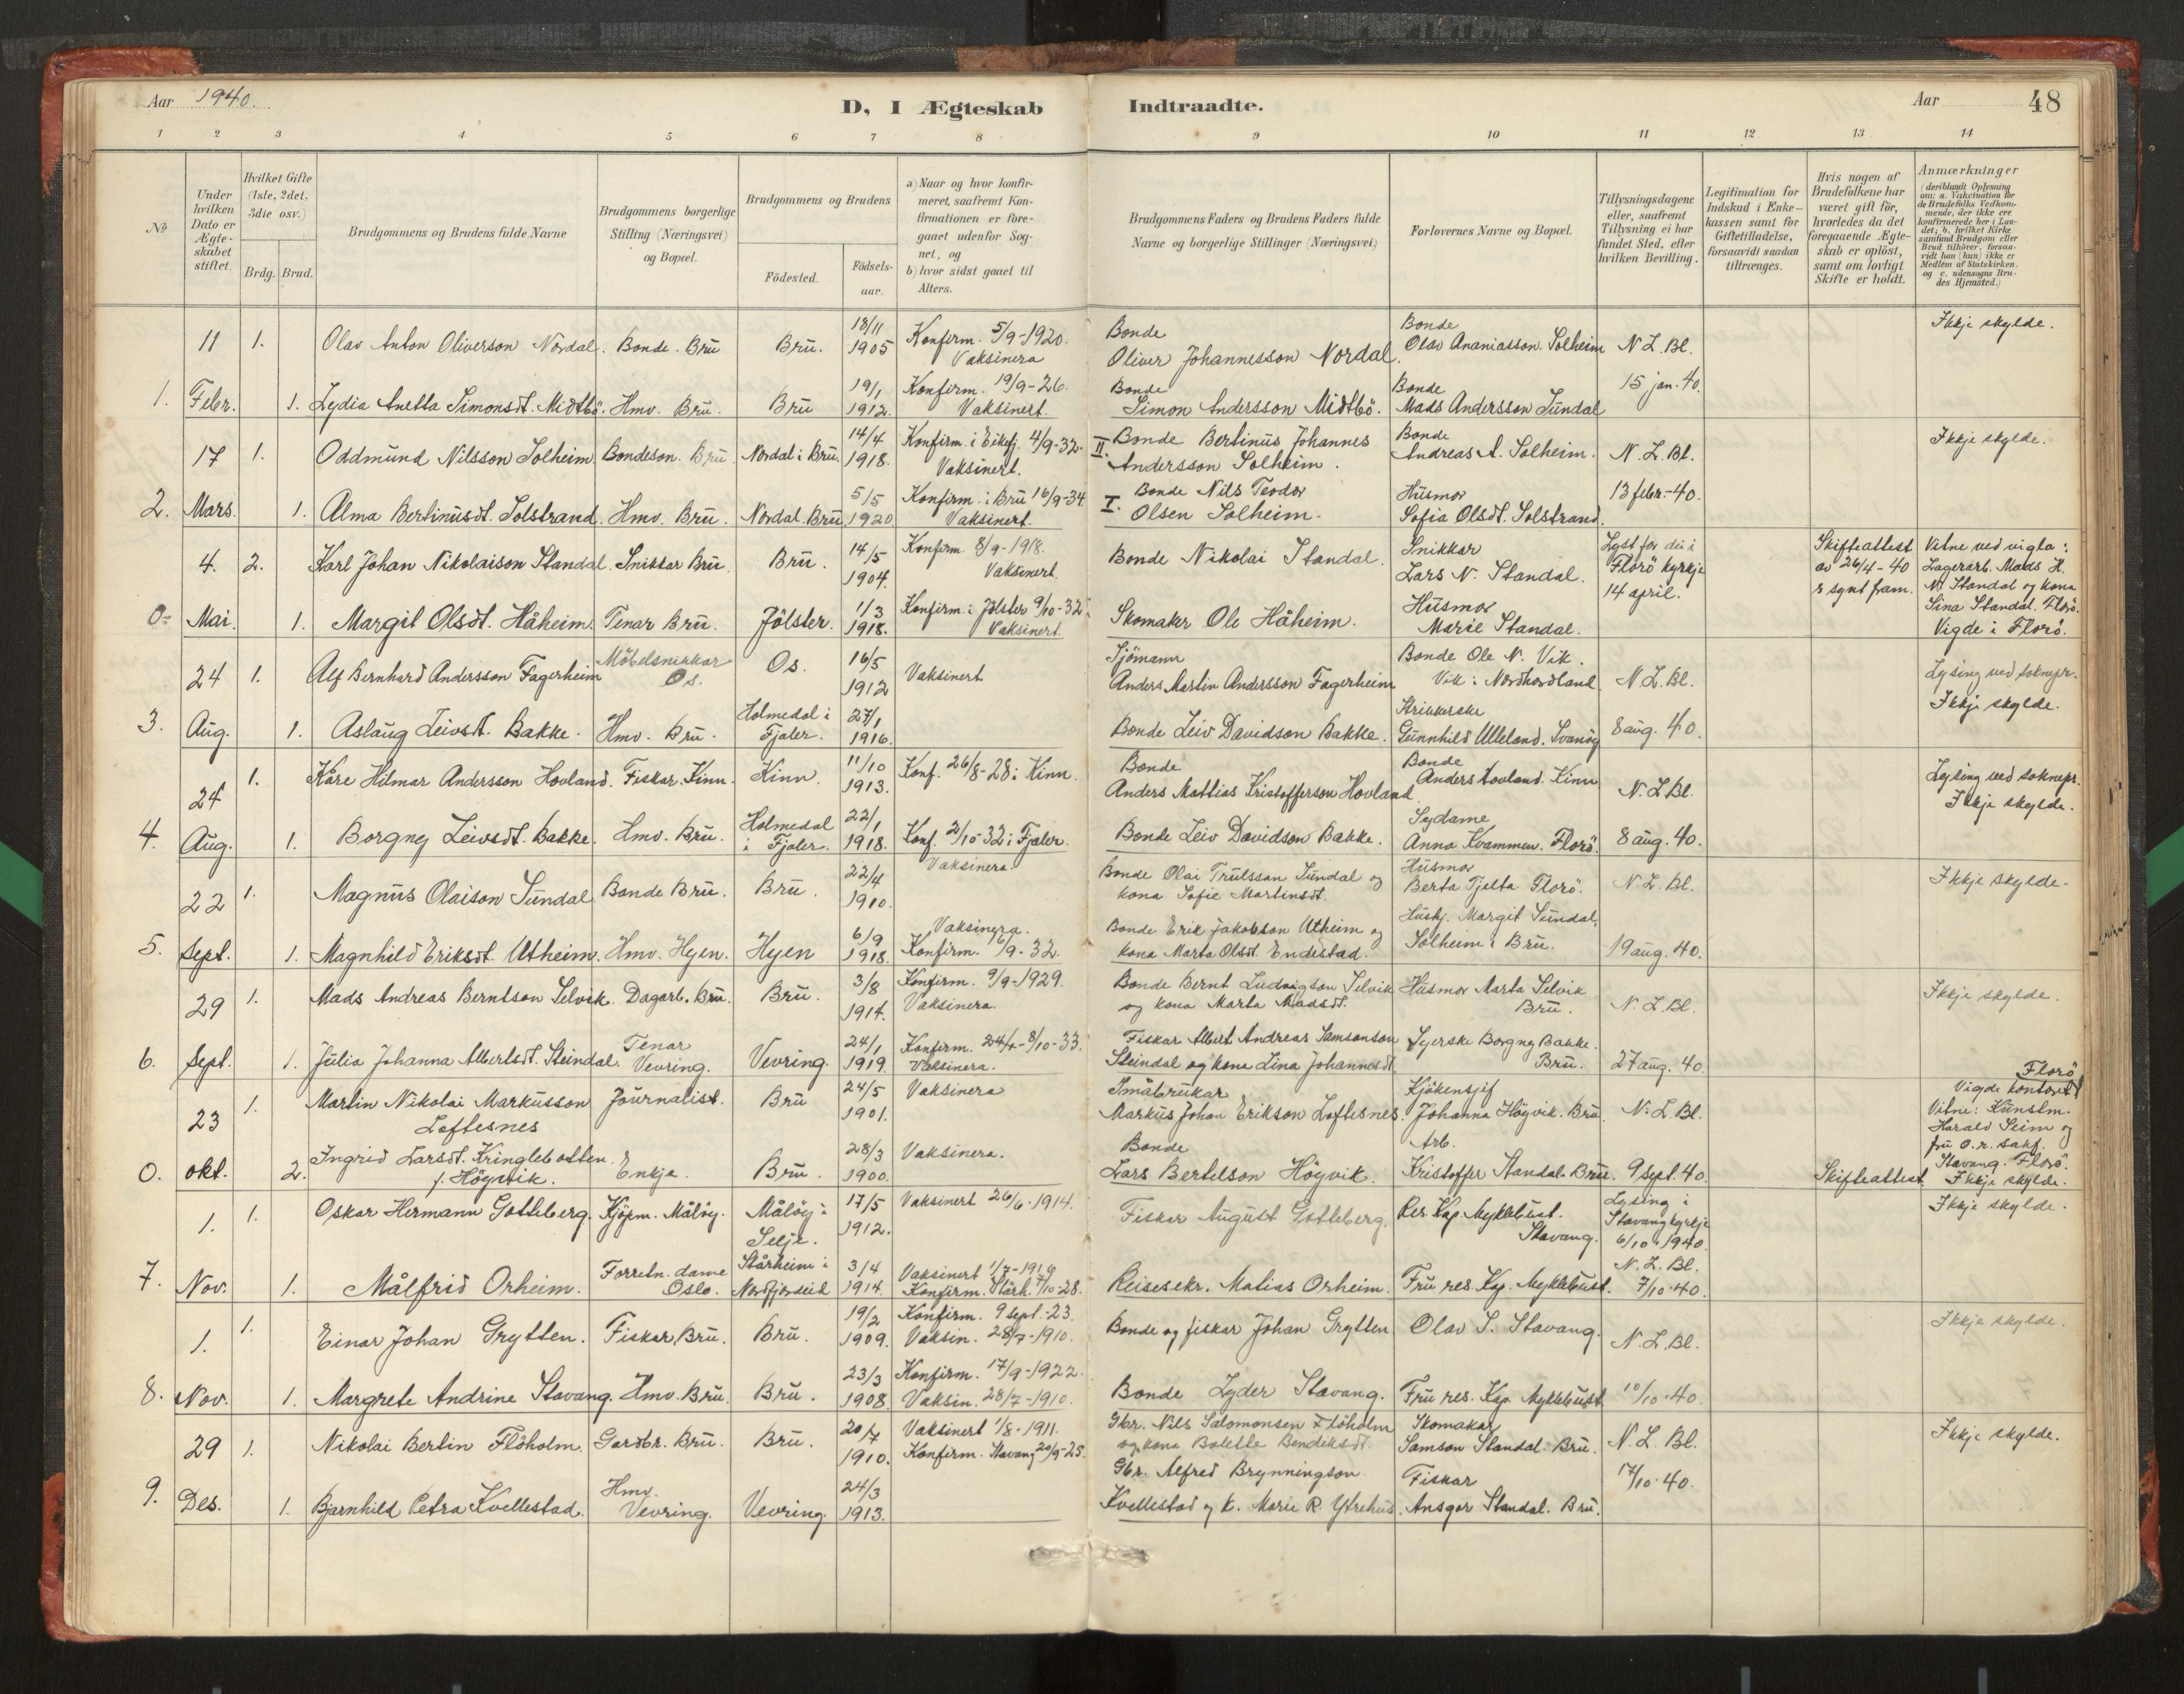 Aar 1940.
D, I Ægteskab Indtraadte.
Aar 48
1 2 3 4 5 6 7 8 9 10 11 12 13 14
No
Under hvilken Dato er Ægteskabet stiftet.
Hvilket Gifte (1ste, 2det, 3die osv.)
Brdg. Brud.
Brudgommens og Brudens fulde Navne
Brudgommens borgerlige Stilling (Næringsvei) og Bopæl.
Brudgommens og Brudens
Födested.
Födselsaar.
a) Naar og hvor konfirmeret, saafremt Konfirmationen er foregaaet udenfor Sognet, og
b) hvor sidst gaaet til Alters.
Brudgommens Faders og Brudens Faders fulde Navne og borgerlige Stillinger (Næringsvei)
Forlovernes Navne og Bopæl.
Tillysningsdagene eller, saafremt Tillysning ei har fundet Sted, efter hvilken Bevilling.
Legitimation for Indskud i Enkekassen samt for Giftetilladelse, forsaavidt saadan tiltrænges.
Hvis nogen af Brudefolkene har været gift för, hvorledes da det foregaaende Ægteskab er oplöst, samt om lovligt Skifte er holdt.
Anmærkninger
(deriblandt Oplysning om: a. Vakcination for de Brudefolks Vedkommende, der ikke ere konfirmerede her i Landet; b. hvilket Kirkesamfund Brudgom eller Brud tilhörer, forsaavidt han (hun) ikke er Medlem af Statskirken, og c. udensogns Brudes Hjemsted.)
11 1. Olav Anton Oliverson Nordal. Bonde. Bru Bru. 18/11 1905 Konfirm. 5/9-1920. Vaksinera
Bonde Oliver Johannesson Nordal. Bonde Olav Ananiasson. Solheim N.L.Bl. Ikkje skylde.
1. Febr. 1. Lydia Anetta Simonsdt. Midtbö. Hmv. Bru. Bru 19/1 1912. Konfirm. 19/9-26. Vaksinert.
Bonde Simon Andersson Midtbö. Bonde Mads Andersson Sundal 15 jan. 40.
17 1. Oddmund Nilsson Solheim. Bondeson. Bru. Nordal i Bru. 14/4 1918. Konfirm. i Eikefj. 4/9-32. Vaksinert.
II. Bonde Bertinus Johannes Andersson Solheim. Bonde Andreas A. Solheim. N.L.Bl. Ikkje skylde.
2. Mars. 1. Alma Bertinusdt. Solstrand. Hmv. Bru. Nordal. Bru. 5/5 1920 Konfirm. i Bru 16/9-34 Vaksinert.
I. Bonde Nils Teodor Olsen Solheim. Husmor Sofia Olsdt. Solstrand. 13 febr.-40.
4. 2. Karl Johan Nikolaison Standal. Snikkar Bru. Bru. 14/5 1904. Konfirm. 8/9-1918. Vaksinert.
Bonde Nikolai Standal. Snikkar Lars N. Standal. Lyst for dei i Florö kyrkje 14 april. Skifteattest av 26/4-40 r synt fram. Vitne ved vigla: Lagerarb. Mads H. N. Standal og kona Sina Standal. Florö. Vigde i Florö.
0. Mai. 1. Margit Olsdt. Håheim. Tenar Bru. Jölster. 1/3 1918. Konfirm. i Jölster 9/10-32. Vaksinert.
Skomaker Ole Håheim. Husmor Marie Standal.
24 1. Alf Bernhard Andersson Fagerheim Möbelsnikkar Os. Os. 16/5 1912 Vaksinert
Sjömann Anders Martin Andersson Fagerheim Bonde Ole N. Vik. Vik i Nordhordland. N.L.Bl. Lysing ved soknepr. Ikkje skylde.
3. Aug. 1. Aslaug Leivsdt. Bakke. Hmv. Bru. Holmedal i Fjaler. 27/1 1916.
Bonde Leiv Davidson Bakke. Strikkerske Gunnhild Ulleland. Svanöy 8 aug. 40.
24 1. Kåre Hilmar Andersson Hovland. Fiskar. Kinn. Kinn. 11/10 1913. Konf. 26/8-28 i Kinn.
Bonde Anders Mattias Kristofferson Hovland. Bonde Anders Hovland. Kinn N.L.Bl. Lysing ved soknepr. Ikkje skylde.
4. Aug. 1. Borgny Leivsdt. Bakke. Hmv. Bru. Holmedal i Fjaler. 22/1 1918. Konf. 2/10 32 i Fjaler.
Bonde Leiv Davidson Bakke. Sydame Anna Kvammen. Florö. 8 aug. 40.
22 1. Magnus Olaison Sundal. Bonde Bru. Bru. 22/4 1910. Vaksinera.
Bonde Olai Trulsson Sundal og kona Sofie Martinsdt. Husmor Berta Tjelta Florö. N.L.Bl. Ikkje skylde.
5. Sept. 1. Magnhild Eriksdt. Utheim. Hmv. Hyen. Hyen 6/9 1918. Vaksinera. Konfirm. 6/9. 32.
Bonde Erik Jakobson Utheim og kona Marta Olsdt. Endestad. Hushj. Margit Sundal, Solheim i Bru. 19 aug. 40.
29 1. Mads Andreas Berntson Selvik. Dagarb. Bru. Bru. 3/8 1914. Konfirm. 9/9-1929. Vaksinera.
Bonde Bernt Ludvigson Selvik og kona Marta Madsdt. Husmor Marta Selvik Bru. N.L.Bl. Ikkje skylde.
6. Sept. 1. Julia Johanna Albertsdt. Steindal. Tenar Vevring. Vevring. 24/1 1919. Konfirm. 8/10-33. Vaksinera.
Fiskar Albert Andreas Samsonson Steindal og kona Lina Johannesdt. Syerske Borgny Bakke. Bru. 27 aug. 40.
23 1. Martin Nikolai Markusson Loftesnes Journalist. Bru 24/5 1901. Vaksinera
Småbrukar Markus Johan Erikson Loftesnes. Kjökensjef Johanna Högvik. Bru. N.L.Bl. Vigde kontoret Florö Vitne: Kunstm. Harald Seim og fru o.r. sakf. Stavang. Florö. Ikkje skylde.
0. okt. 2. Ingrid Larsdt. Kringlebotten. f. Högvik. Enkja. Bru. 28/3 1900. Vaksinera.
Bonde Lars Bertelson Högvik. Arb. Kristoffer Standal. Bru. 9 sept. 40. Skifteattest.
1. 1. Oskar Hermann Gotteberg. Kjöpm. Målöy. Målöy i Selje. 17/5 1912. Vaksinert 26/6-1914.
Fiskar August Gotteberg. Res. Kap Myklebust. Stavang. Lysing i Stavang kyrkje 6/10.1940. Ikkje skylde.
7. Nov. 1. Målfrid Orheim. Forretn. dame Oslo. Stårheim i Nordfjordeid 3/4 1914. Vaksinert 1/7-1916 Konfirm. Stårh. 7/10-28.
Reisesekr. Matias Orheim. Fru res. Kap. Myklebust. N.L.Bl. 7/10.40.
1. 1. Einar Johan Grytten. Fiskar, Bru. Bru. 19/2 1909. Konfirm. 9 sept.-23. Vaksin. 28/7-1910.
Bonde og fiskar Johan Grytten Olav S. Stavang. N.L.Bl. Ikkje skylde.
8. Nov. 1. Margrete Andrine Stavang. Hmv. Bru. Bru. 23/3 1908. Konfirm. 17/9-1922. Vaksin. 28/7-1910.
Bonde Lyder Stavang. Fru res. Kap. Myklebust. 10/10.40.
29 1. Nikolai Bertin Flöholm. Gardbr. Bru. Bru. 20/7 1910. Vaksinert 1/8-1911. Konfirm. Stavang 20/9-25.
Gbr. Nils Salomonsen Flöholm og kona Bolette Bendeksdt. Skomakar Samson Standal. Bru. N.L.Bl. Ikkje skylde.
9. Des. 1. Bjarnhild Petra Kvellestad. Hmv. Vevring. Vevring. 24/3 1913.
Gbr. Alfred Brynningson Kvellestad og k. Marie R. Ytrehus. Fiskar Ansgar Standal. Bru. 17/10.40.